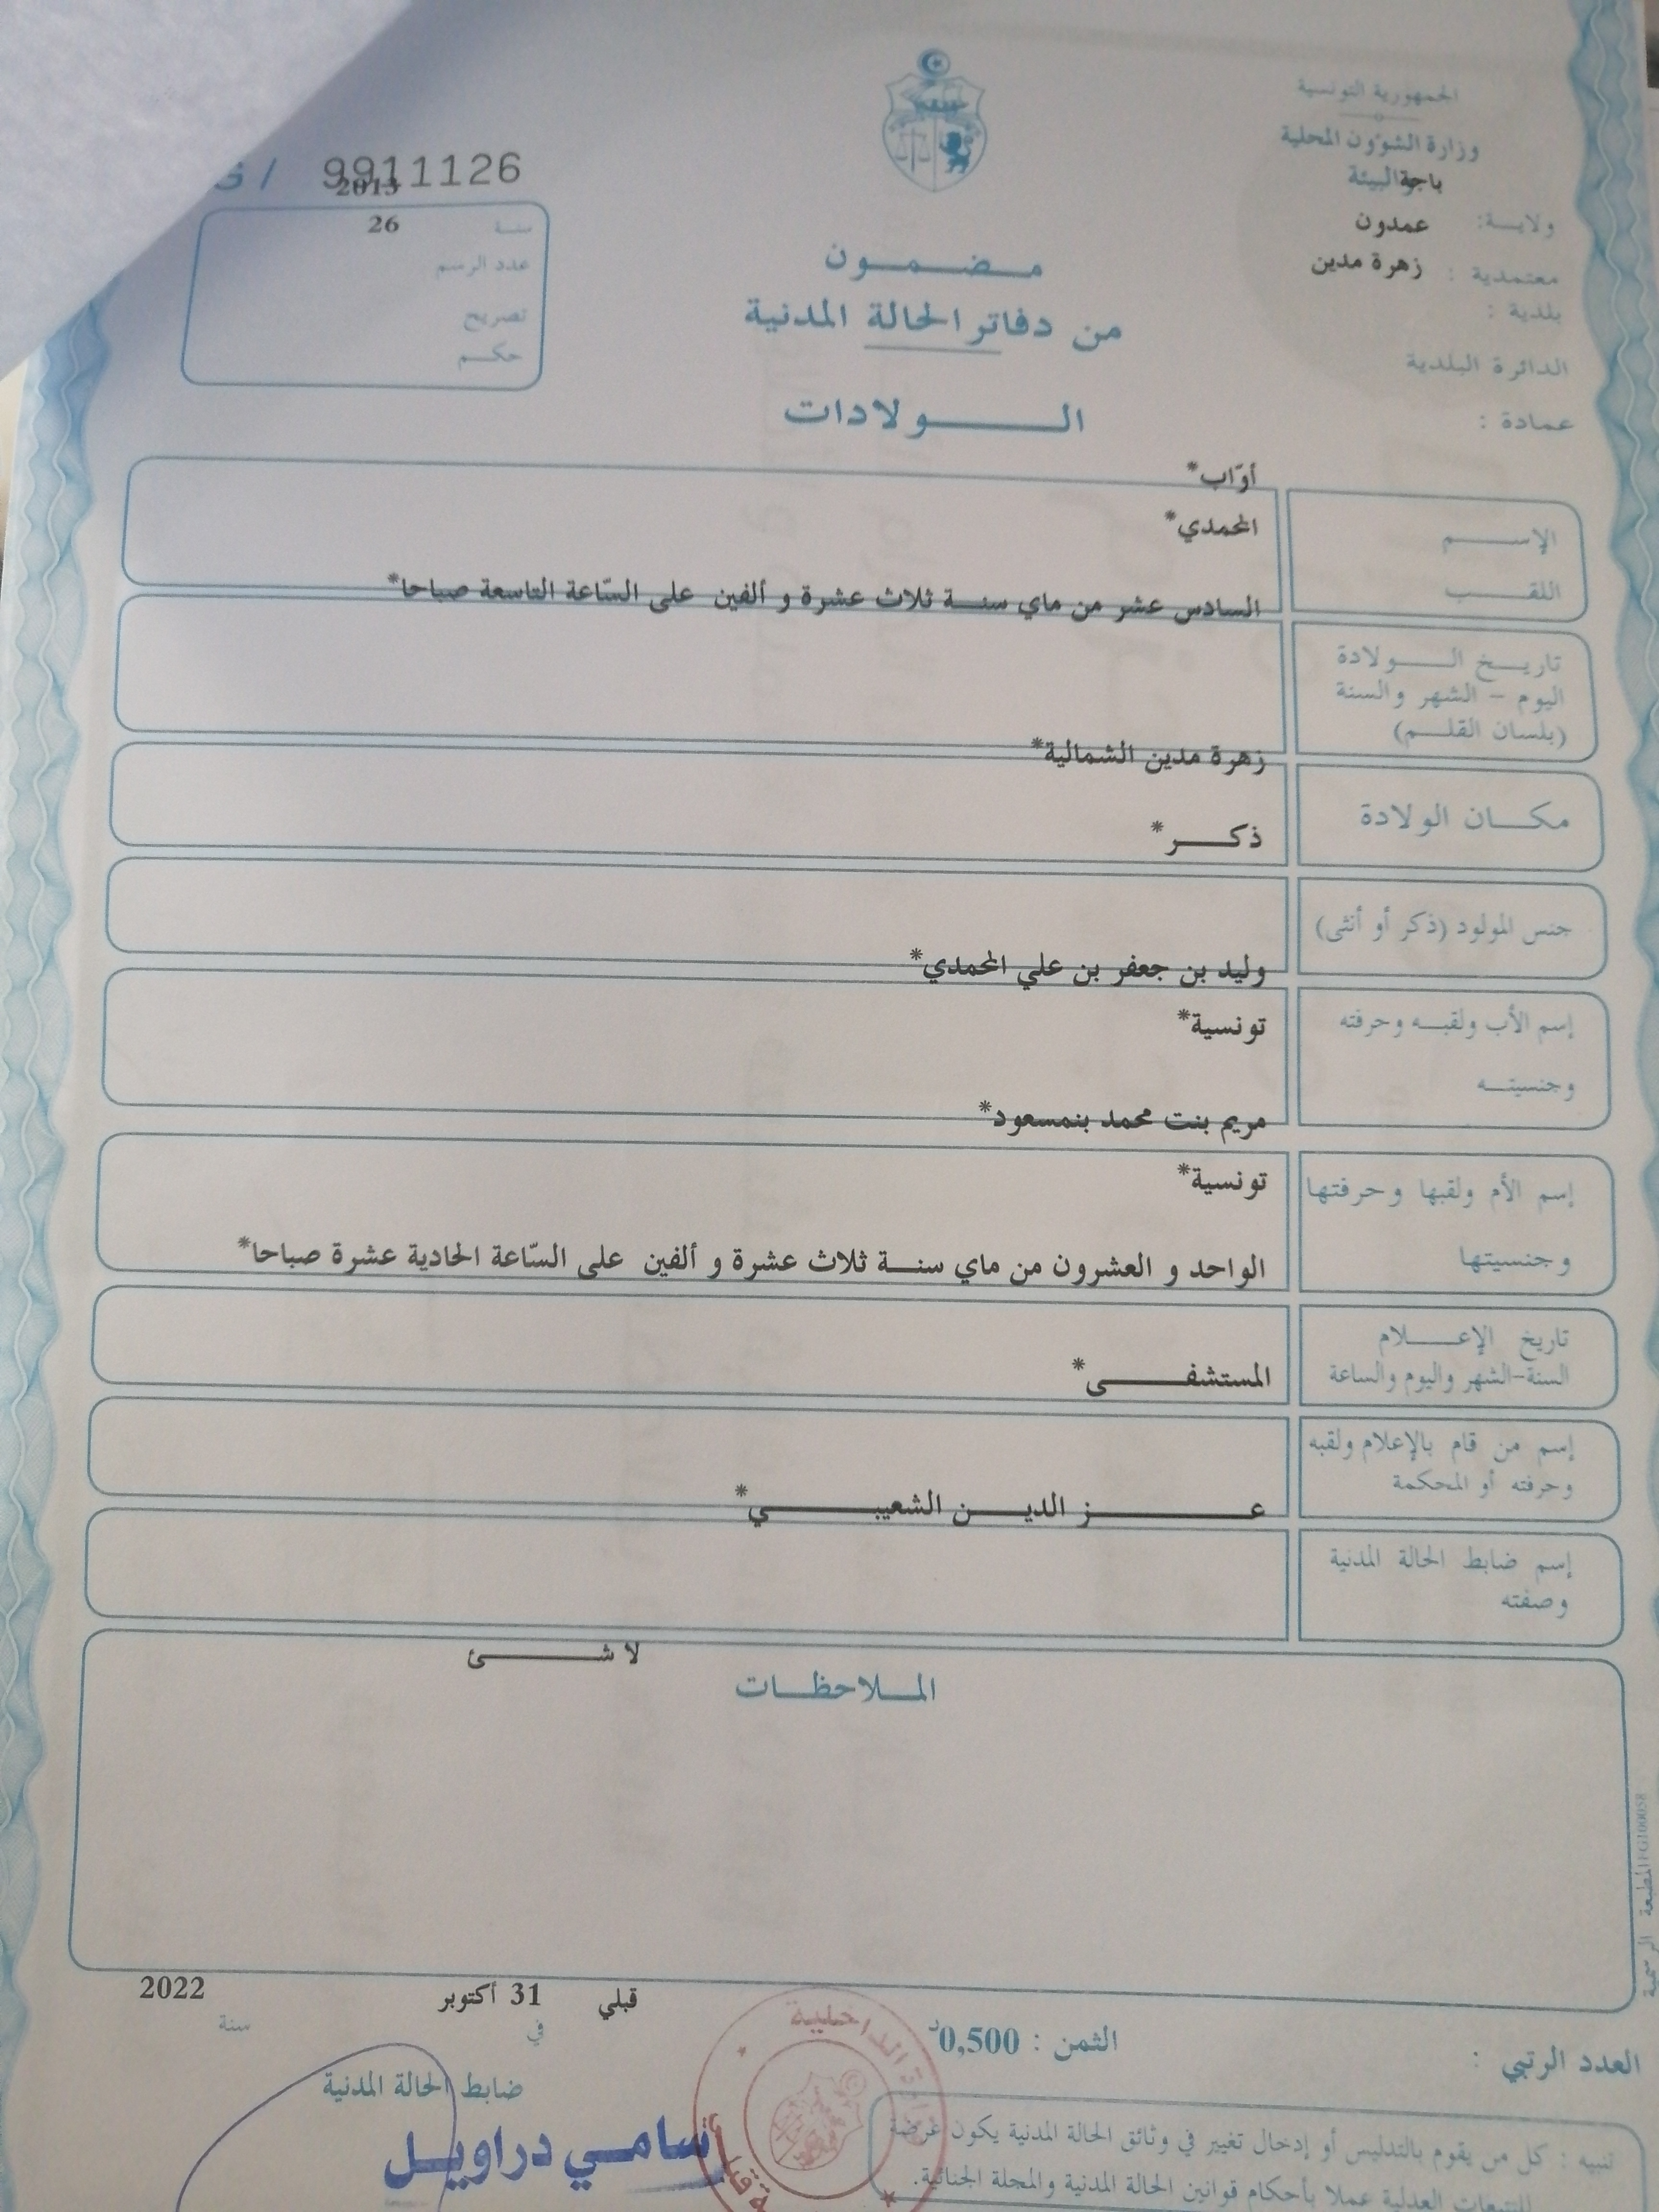 الجمهورية التونسية
وزارة الشؤون المحلية
والبيئة
باجة
ولايـــة: عمدون
معتمدية : زهرة مدين
بلدية :
الدائرة البلدية
عمادة :
G / 9911126
2013
سنة 26
عدد الرسم
تصريح
حكـــم
مـــضـــمـــون
من دفاتر الحالة المدنية
الــــــولادات
أوّاب*
الإســـــم
المحمدي*
اللقـــــب
السادس عشر من ماي سنـــة ثلاث عشرة و ألفين على السّاعة التاسعة صباحا*
تاريــخ الــــولادة
اليوم – الشهر والسنة
(بلسان القلـــم)
زهرة مدين الشمالية*
مكـــان الولادة
ذكـــــر*
جنس المولود (ذكر أو أنثى)
وليد بن جعفر بن علي المحمدي*
إسم الأب ولقبــه وحرفته
تونسية*
وجنسيتـــه
مريم بنت محمد بنمسعود*
إسم الأم ولقبها وحرفتها
تونسية*
وجنسيتها
الواحد و العشرون من ماي سنـــة ثلاث عشرة و ألفين على السّاعة الحادية عشرة صباحا*
تاريخ الإعـــــلام
السنة-الشهر واليوم والساعة
المستشفـــــــى*
إسم من قام بالإعلام ولقبه
وحرفته أو المحكمة
عـــــــــز الديـــــن الشعيبـــــــــي*
إسم ضابط الحالة المدنية
وصفته
لا شـــــــئ
المـــلاحظـــات
المطبعة الرسمية
قبلي 31 أكتوبر 2022
في سنة
الثمن : 0,500د
العدد الرتبي :
ضابط الحالة المدنية
سامي دراويل
الداخلية
تنبيه : كل من يقوم بالتدليس أو إدخال تغيير في وثائق الحالة المدنية يكون عرضة
للتتبعات العدلية عملا بأحكام قوانين الحالة المدنية والمجلة الجنائية.